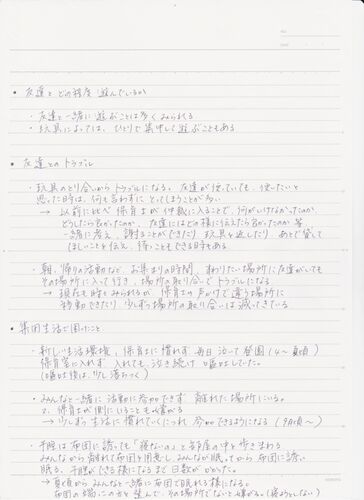 • 友達とどの程度遊んでいるか
・友達と一緒に遊ぶことは多くみられる
・玩具によっては、ひとりで集中して遊ぶこともある
• 友達とのトラブル
・玩具のとり合いからトラブルになる。友達が使っていても、使いたいと
思った時は、何も言わずにとってしまうことが多い
→ 以前に比べ保育士が仲裁に入ることで、何がいけなかったのか、
どうしたら良かったのか、友達にはどの様に伝えたら良かったのか等
一緒に考え、謝ることができたり玩具を返したり、あとで貸して
ほしいことを伝え、待つこともできる時もある
・朝、帰りの活動など、お集まりの時間、すわりたい場所に友達がいても
その場所に入って行き、場所の取り合いでトラブルになる
→ 現在も時々みられるが、保育士の声かけで違う場所に
移動できたり、少しずつ場所の取り合いは減ってきている
• 集団生活で困ったこと
・新しい生活環境、保育士に慣れず毎日泣いて登園(4〜夏頃)
保育室に入れず、入れても、泣き続け嘔吐していた。
(嘔吐後は、少し落ちつく)
・みんなと一緒に活動に参加できず離れた場所にいる。
又、保育士が側にいることも嫌がる
→ 少しずつ生活に慣れていくにつれ参加できるようになる(9月頃〜)
・午睡は布団に誘っても「寝ないの」と部屋の中を歩きまわる
みんなから離れて布団を用意し、みんなが眠ってから布団に誘い
眠る、午睡ができる様になるまで日数がかかった。
→ 夏頃からみんなと一緒に布団で眠れる様になる。
布団の場所にこの方を望んで、その場所でないと嫌がる(寝ようとしない)